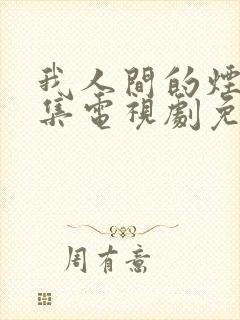 我人間的煙
集電視劇免
周有意